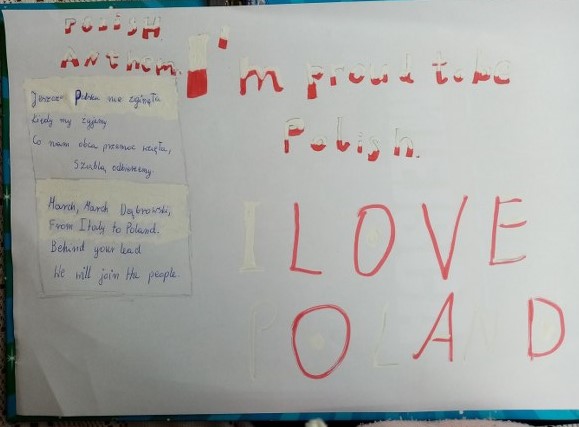 POLISH
Anthem.
I'm proud to be
Polish.
Jeszcze Polska nie zginęła
Kiedy my żyjemy
Co nam obca przemoc wzięła,
Szablą odbierzemy.
March, March Dąbrowski,
From Italy to Poland.
Behind your lead
We will join the people.
I LOVE
POLAND